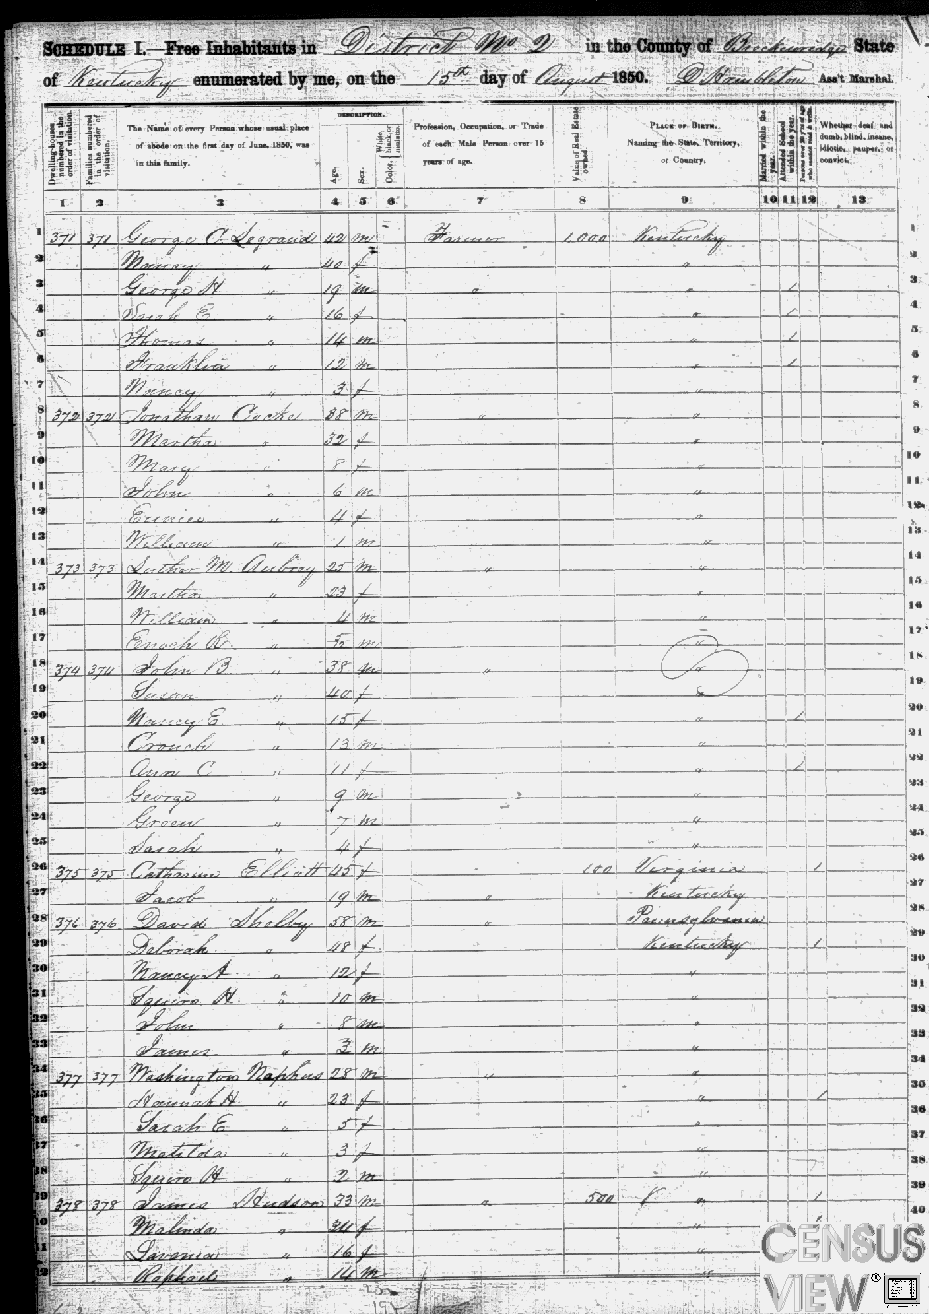 SCHEDULE I.—Free Inhabitants in District No 2 in the County of Breckenridge State
of Kentucky enumerated by me, on the 15th day of August 1850. D Hambleton Ass't Marshal.
Dwelling-houses numbered in the order of visitation.
Families numbered in the order of visitation.
The Name of every Person whose usual place of abode on the first day of June, 1850, was in this family.
DESCRIPTION.
Age.
Sex.
Color, White, black, or mulatto.
Profession, Occupation, or Trade of each Male Person over 15 years of age.
Value of Real Estate owned.
PLACE OF BIRTH. Naming the State, Territory, or Country.
Married within the year.
Attended School within the year.
Persons over 20 y'rs of age who cannot read & write.
Whether deaf and dumb, blind, insane, idiotic, pauper, or convict.
1 2 3 4 5 6 7 8 9 10 11 12 13
1 371 371 George C. Legrand 42 m Farmer 1,000 Kentucky 1
2 Nancy " 40 f " 2
3 George H " 19 m " " 1 3
4 Sarah E " 16 f " 1 4
5 Thomas " 14 m " 1 5
6 Franklin " 12 m " 1 6
7 Nancy " 3 f " 7
8 372 372 Jonathan 38 m " " 8
9 Martha " 32 f " 9
10 Mary " 8 f " 10
11 John " 6 m " 11
12 " 4 f " 12
13 William " 1 m " 13
14 373 373 Luther M. 25 m " " 14
15 Martha " 23 f " 15
16 William " 4 m " 16
17 Enoch R. " m " 17
18 374 374 John B. " 38 m " " 18
19 Susan " 40 f " 19
20 Nancy E. " 15 f " 1 20
21 Crouch " 13 m " 21
22 Ann C " 11 f " 1 22
23 George " 9 m " 23
24 Green " 7 m " 24
25 Sarah " 4 f " 25
26 375 375 Catharine Elliott 45 f 100 Virginia 1 26
27 Jacob " 19 m " Kentucky 27
28 376 376 David Shelby 58 m " Pennsylvania 28
29 Deborah " 48 f Kentucky 1 29
30 Nancy A " 12 f " 30
31 Squire H. " 10 m " 31
32 John " 8 m " 32
33 James " 3 m " 33
34 377 377 Washington Naphus 28 m " " 34
35 Hannah H " 23 f " 1 35
36 Sarah E " 5 f " 36
37 Matilda " 3 f " 37
38 Squire H " 2 m " 38
39 378 378 James Hudson 33 m " 500 " 1 39
40 Malinda " 34 f " 1 40
41 " 16 f "
42 Raphael " 14 m "
CENSUS
VIEW®